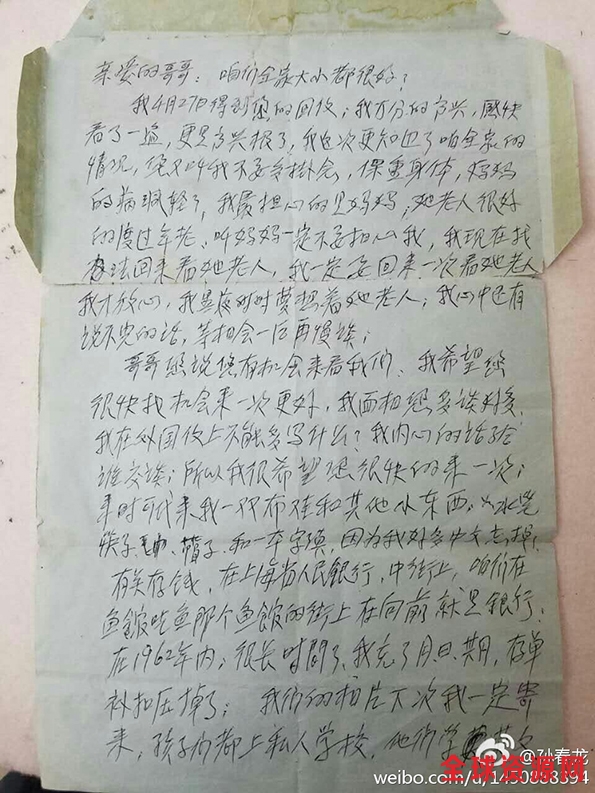 亲爱的哥哥：咱们全家大小都很好？
我4月27日得到您的回信；我万分的高兴，赶快
看了一遍，更是高兴极了，我这次更知道了咱全家的
情况，您又叫我不要多挂念，保重身体，妈妈
的病减轻了，我最担心的是妈妈；她老人很好
的度过年老，叫妈妈一定不要担心我，我现在找
办法回来看她老人，我一定要回来一次看她老人
我才放心，我是夜时时梦想着她老人；我心中还有
说不完的话，等相会一后再慢谈；
哥哥您说您有机会来看我们，我希望您
很快找机会来一次更好，我面相您多谈好多
我在外国信上不能多写什么？我内心的话给
谁交谈；所以我很希望您很快的来一次；
来时可代来我一双布鞋和其他小东西，
筷子、帽子、和一本字典，因为我好多中文忘掉，
有关存钱，在上海省人民银行，中街上，咱们在
鱼馆吃鱼那个鱼馆的街上在向前就是银行，
在1962年内；很长时间了，我忘了月、日、期，存单
被扣压掉了；我们的相片下次我一定寄
来，孩子们都上私人学校，他们学
@孙春龙
weibo.com/u/1450883394
全球资源网